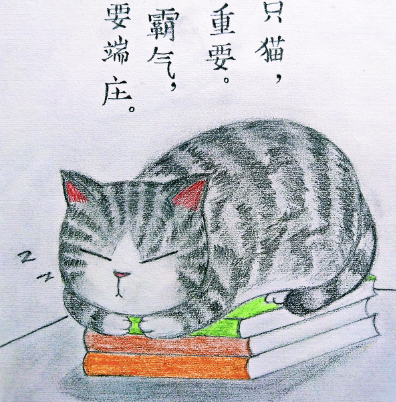 只猫，
重要。
霸气，
要端庄。
z
z